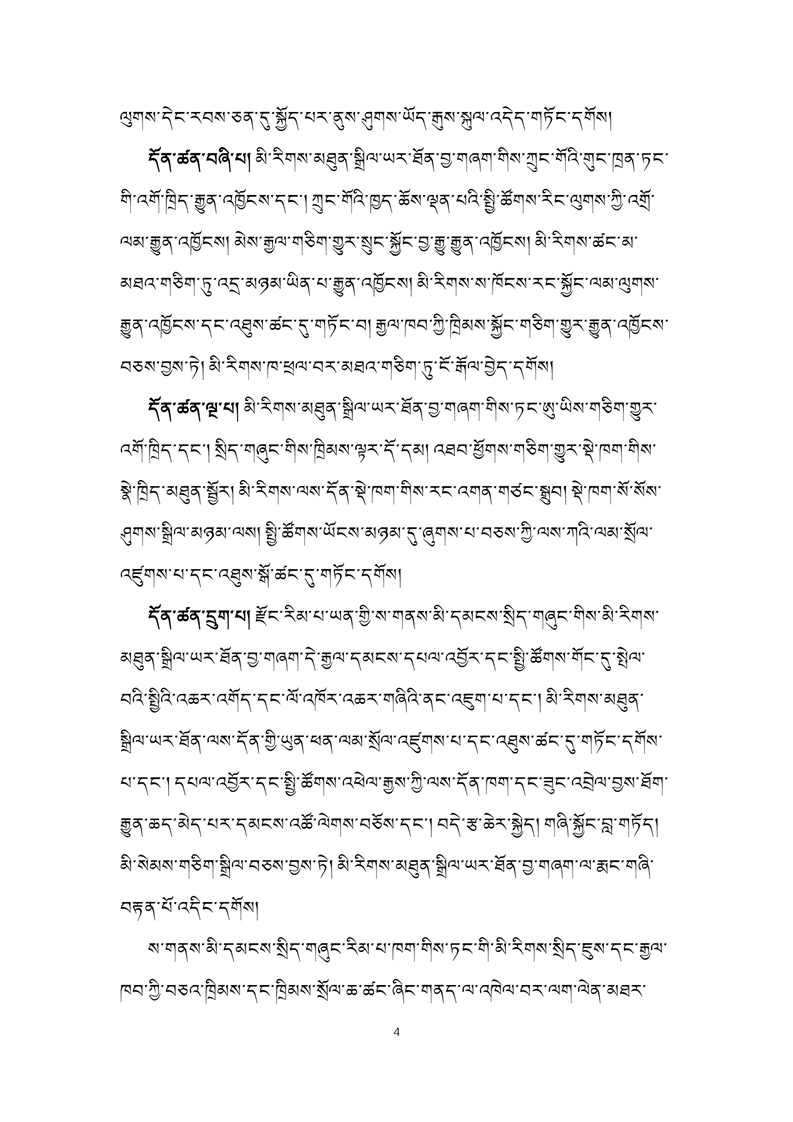 ལུགས་དེང་རབས་ཅན་དུ་སྐྱོད་པར་ནུས་ཤུགས་ཡོད་རྒུས་སྐུལ་འདེད་གཏོང་དགོས།
དོན་ཚན་བཞི་པ། མི་རིགས་མཐུན་སྒྲིལ་ཡར་ཐོན་བྱ་གཞག་གིས་ཀྲུང་གོའི་གུང་ཁྲན་ཏང་
གི་འགོ་ཁྲིད་རྒྱུན་འཁྱོངས་དང་། ཀྲུང་གོའི་ཁྱད་ཆོས་ལྡན་པའི་སྤྱི་ཚོགས་རིང་ལུགས་ཀྱི་འགྲོ་
ལམ་རྒྱུན་འཁྱོངས། མེས་རྒྱལ་གཅིག་གྱུར་སྲུང་སྐྱོང་བྱ་རྒྱུ་རྒྱུན་འཁྱོངས། མི་རིགས་ཚང་མ་
མཐའ་གཅིག་ཏུ་འདྲ་མཉམ་ཡིན་པ་རྒྱུན་འཁྱོངས། མི་རིགས་ས་ཁོངས་རང་སྐྱོང་ལམ་ལུགས་
རྒྱུན་འཁྱོངས་དང་འཐུས་ཚང་དུ་གཏོང་བ། རྒྱལ་ཁབ་ཀྱི་ཁྲིམས་སྐྱོང་གཅིག་གྱུར་རྒྱུན་འཁྱོངས་
བཅས་བྱས་ཏེ། མི་རིགས་ཁ་ཕྲལ་བར་མཐའ་གཅིག་ཏུ་ངོ་རྒོལ་བྱེད་དགོས།
དོན་ཚན་ལྔ་པ། མི་རིགས་མཐུན་སྒྲིལ་ཡར་ཐོན་བྱ་གཞག་གིས་ཏང་ཨུ་ཡིས་གཅིག་གྱུར་
འགོ་ཁྲིད་དང་། སྲིད་གཞུང་གིས་ཁྲིམས་ལྟར་དོ་དམ། འཐབ་ཕྱོགས་གཅིག་གྱུར་སྡེ་ཁག་གིས་
སྣེ་ཁྲིད་མཐུན་སྦྱོར། མི་རིགས་ལས་དོན་སྡེ་ཁག་གིས་རང་འགན་གཙང་སྒྲུབ། སྡེ་ཁག་སོ་སོས་
ཤུགས་སྒྲིལ་མཉམ་ལས། སྤྱི་ཚོགས་ཡོངས་མཉམ་དུ་ཞུགས་པ་བཅས་ཀྱི་ལས་ཀའི་ལམ་སྲོལ་
འཛུགས་པ་དང་འཐུས་སྒོ་ཚང་དུ་གཏོང་དགོས།
དོན་ཚན་དྲུག་པ། རྫོང་རིམ་པ་ཡན་གྱི་ས་གནས་མི་དམངས་སྲིད་གཞུང་གིས་མི་རིགས་
མཐུན་སྒྲིལ་ཡར་ཐོན་བྱ་གཞག་དེ་རྒྱལ་དམངས་དཔལ་འབྱོར་དང་སྤྱི་ཚོགས་གོང་དུ་སྤེལ་
བའི་སྤྱིའི་འཆར་འགོད་དང་ལོ་འཁོར་འཆར་གཞིའི་ནང་འཇུག་པ་དང་། མི་རིགས་མཐུན་
སྒྲིལ་ཡར་ཐོན་ལས་དོན་གྱི་ཡུན་ཕན་ལམ་སྲོལ་འཛུགས་པ་དང་འཐུས་ཚང་དུ་གཏོང་དགོས་
པ་དང་། དཔལ་འབྱོར་དང་སྤྱི་ཚོགས་འཕེལ་རྒྱས་ཀྱི་ལས་དོན་ཁག་དང་ཟུང་འབྲེལ་བྱས་ཐོག་
རྒྱུན་ཆད་མེད་པར་དམངས་འཚོ་ལེགས་བཅོས་དང་། བདེ་རྩ་ཆེར་སྐྱེད། གཞི་སྐྱོང་བླ་གཏོད།
མི་སེམས་གཅིག་སྒྲིལ་བཅས་བྱས་ཏེ། མི་རིགས་མཐུན་སྒྲིལ་ཡར་ཐོན་བྱ་གཞག་ལ་རྨང་གཞི་
བརྟན་པོ་འདིང་དགོས།
ས་གནས་མི་དམངས་སྲིད་གཞུང་རིམ་པ་ཁག་གིས་ཏང་གི་མི་རིགས་སྲིད་ཇུས་དང་རྒྱལ་
ཁབ་ཀྱི་བཅའ་ཁྲིམས་དང་ཁྲིམས་སྲོལ་ཆ་ཚང་ཞིང་གནད་ལ་འཁེལ་བར་ལག་ལེན་མཐར་
4